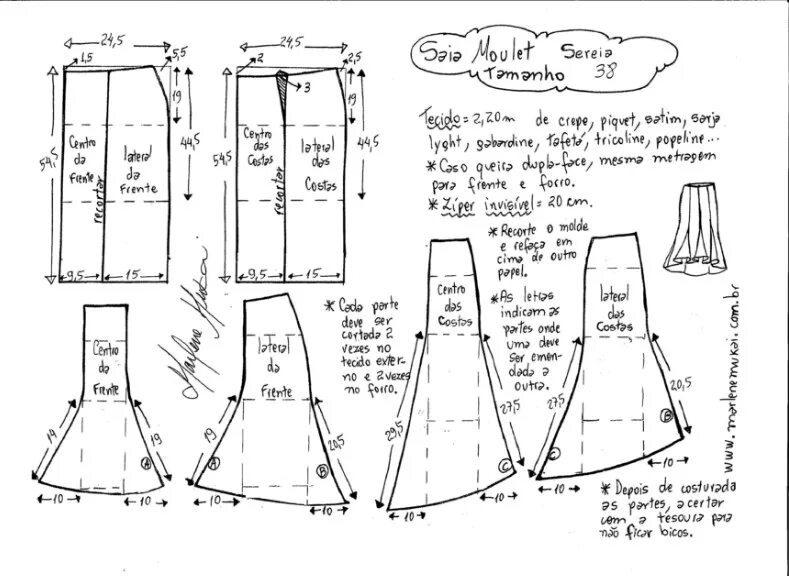 Saia Moulet Sereia
Tamanho 38
Tecido = 2,20m de crepe, piquet, satim, sarja
lyght, gabardine, tafetá, tricoline, popeline...
* Caso queira dupla-face, mesma metragem
para frente e forro.
* Zíper invisível = 20 cm.
* Recorte o molde
e refaça em
cima de outro
papel.
* As letras
indicam as
partes onde
uma deve
ser emen-
dada a
outra.
24,5
1,5
5,5
19
44,5
54,5
Centro
da
Frente
recortar
lateral
da
Frente
9,5
15
24,5
2
2,5
3
19
44,5
54,5
Centro
das
Costas
recortar
lateral
das
Costas
9,5
15
Marlene Mukai
* Cada parte
deve ser
cortada 2
vezes no
tecido exter-
no e 2 vezes
no forro.
Centro
da
Frente
19
19
A
10
10
lateral
da
Frente
19
20,5
A
B
10
10
Centro
das
Costas
29,5
27,5
C
10
10
lateral
das
Costas
27,5
20,5
C
B
10
10
www.marlenemukai.com.br
* Depois de costurada
as partes, acertar
com a tesoura para
não ficar bicos.